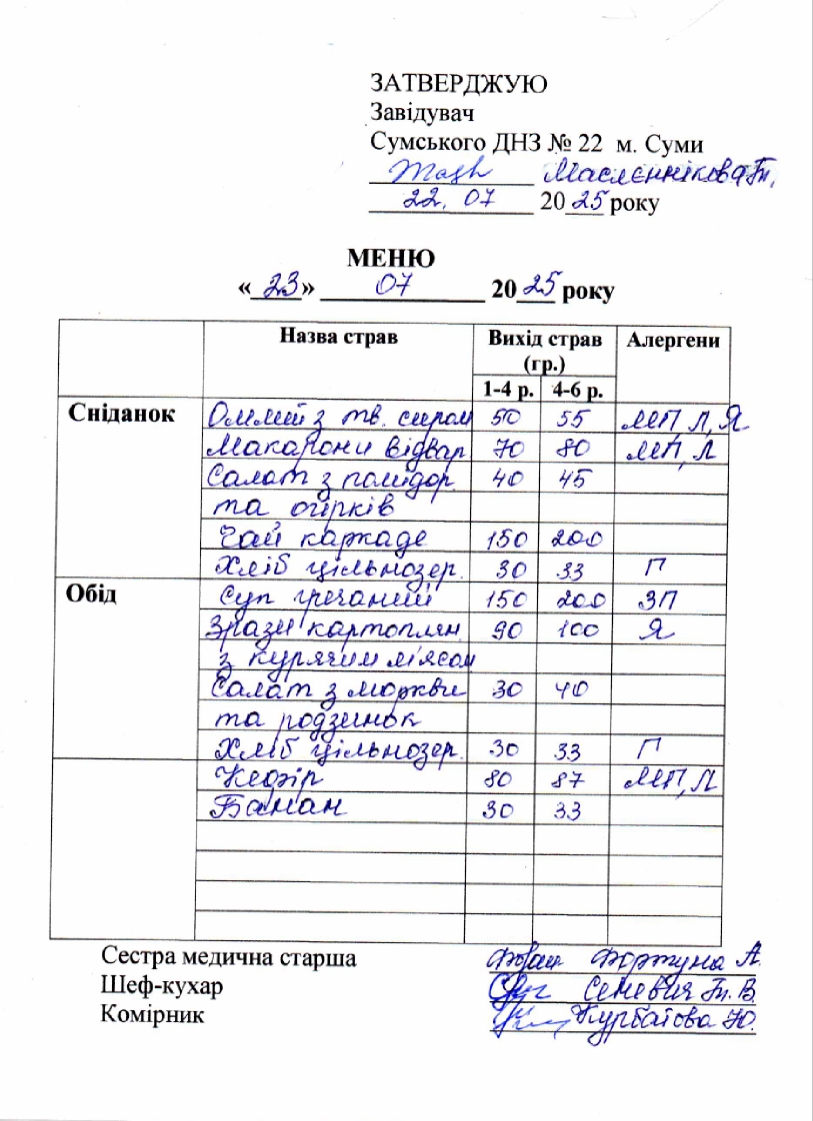 ЗАТВЕРДЖУЮ
Завідувач
Сумського ДНЗ № 22 м. Суми
Маслєннікова Т.
22. 07 2025 року
МЕНЮ
«23» 07 2025 року
Назва страв Вихід страв (гр.) Алергени
1-4 р. 4-6 р.
Сніданок Омлет з тв. сиром 50 55 МП, Л, Я
Макарони відвар 70 80 МП, Л
Салат з помідор 40 45
та огірків
Чай каркаде 150 200
Хліб цільнозер. 30 33 П
Обід Суп гречаний 150 200 ЗП
Зрази картоплян. 90 100 Я
з курячим м'ясом
Салат з моркви 30 40
та родзинок
Хліб цільнозер. 30 33 П
Кефір 80 87 МП, Л
Банан 30 33
Сестра медична старша Фортуна А.
Шеф-кухар Семевич Т. В.
Комірник Курбатова Ю.